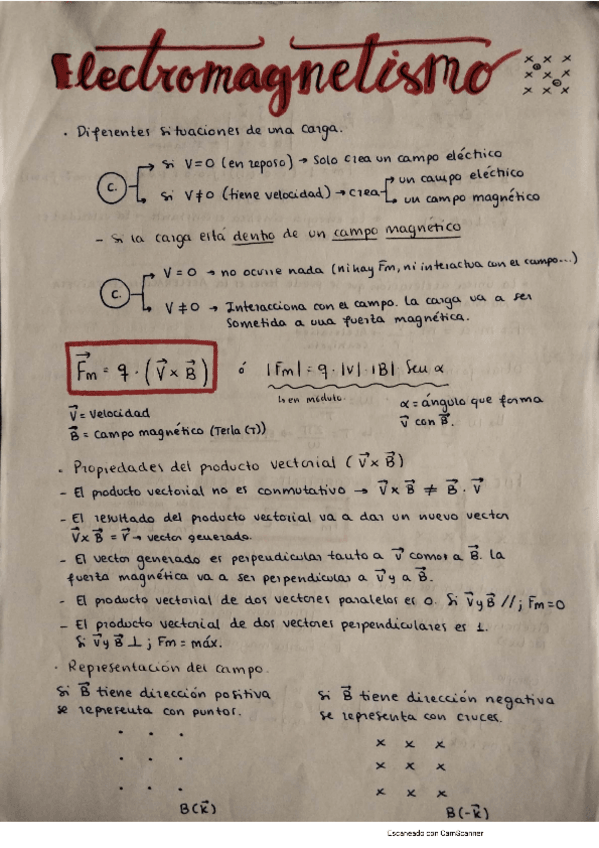 Electromagnetismo
· Diferentes situaciones de una carga.
C. → si V=0 (en reposo) → Solo crea un campo eléctrico
→ si V≠0 (tiene velocidad) → crea → un campo eléctrico
→ un campo magnético
- Si la carga está dentro de un campo magnético
C. → V = 0 → no ocurre nada (ni hay Fm, ni interactua con el campo...)
→ V ≠ 0 → Interacciona con el campo. La carga va a ser
sometida a una fuerza magnética.
F⃗m = q · (V⃗ x B⃗) ó |Fm| = q · |V| · |B| Sen α
↳ en módulo.
V⃗ = Velocidad
B⃗ = Campo magnético (Tesla (T))
α = ángulo que forma
V⃗ con B⃗.
· Propiedades del producto vectorial (V⃗ x B⃗)
- El producto vectorial no es conmutativo → V⃗ x B⃗ ≠ B⃗ · V⃗
- El resultado del producto vectorial va a dar un nuevo vector
V⃗ x B⃗ = r⃗ → vector generado.
- El vector generado es perpendicular tanto a V⃗ como a B⃗. La
fuerza magnética va a ser perpendicular a V⃗ y a B⃗.
- El producto vectorial de dos vectores paralelos es 0. Si V⃗ y B⃗ // ; Fm=0
- El producto vectorial de dos vectores perpendiculares es 1.
Si V⃗ y B⃗ ⊥ ; Fm = máx.
· Representación del campo.
Si B⃗ tiene dirección positiva
se representa con puntos.
B(k⃗)
Si B⃗ tiene dirección negativa
se representa con cruces.
x x x
x x x
x x x
B(-k⃗)
Escaneado con CamScanner